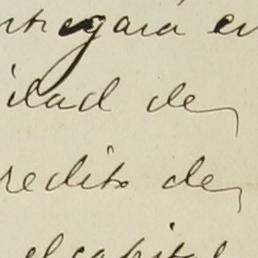 ntregará en
idad de
redito de
el capital